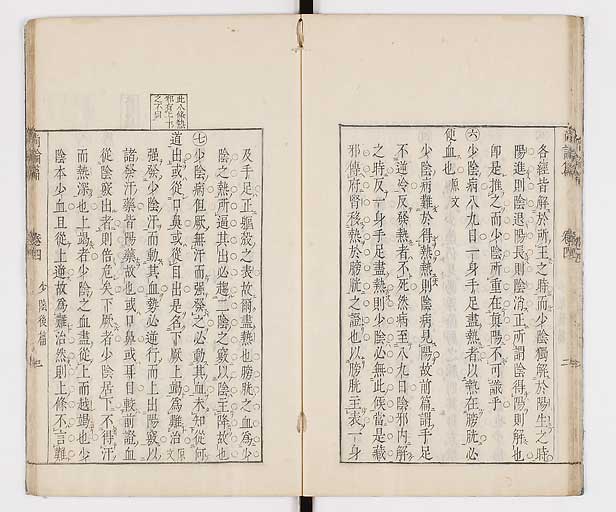 各經皆解於所王之時而少陰獨解於陽生之時
陽進則陰退陽長則陰消正所謂陰得陽則解也
卽是推之而少陰所重在眞陽不可識乎
六少陰病八九日一身手足盡熱者以熱在膀胱必
便血也原文
少陰病難於得熱熱則陰病見陽故前篇謂手足
不逆冷反發熱者不死然病至八九日陰邪內解
之時反一身手足盡熱則少陰必無此候當是藏
邪傳府腎移熱於膀胱之證也以膀胱主表一身
此八條熱
邪有
之不
及手足正軀殼之表故爾盡熱也膀胱之血爲少
陰之熱所逼其出必趨二陰之竅以陰主降故也
七少陰病但厥無汗而强發之必動其血未知從何
道出或從口鼻或從目出是名下厥上竭爲難治原文
强發少陰汗而動其血勢必逆行而上出陽竅以
諸發汗藥皆陽藥故也或口鼻或耳目較前證血
從陰竅出者則倍危矣下厥者少陰居下不得汗
而熱深也上竭者少陰之血盡從上而越竭也少
陰本少血且從上逆故爲難治然則上條不言難
卷四
少陰後篇
三
卷四
二